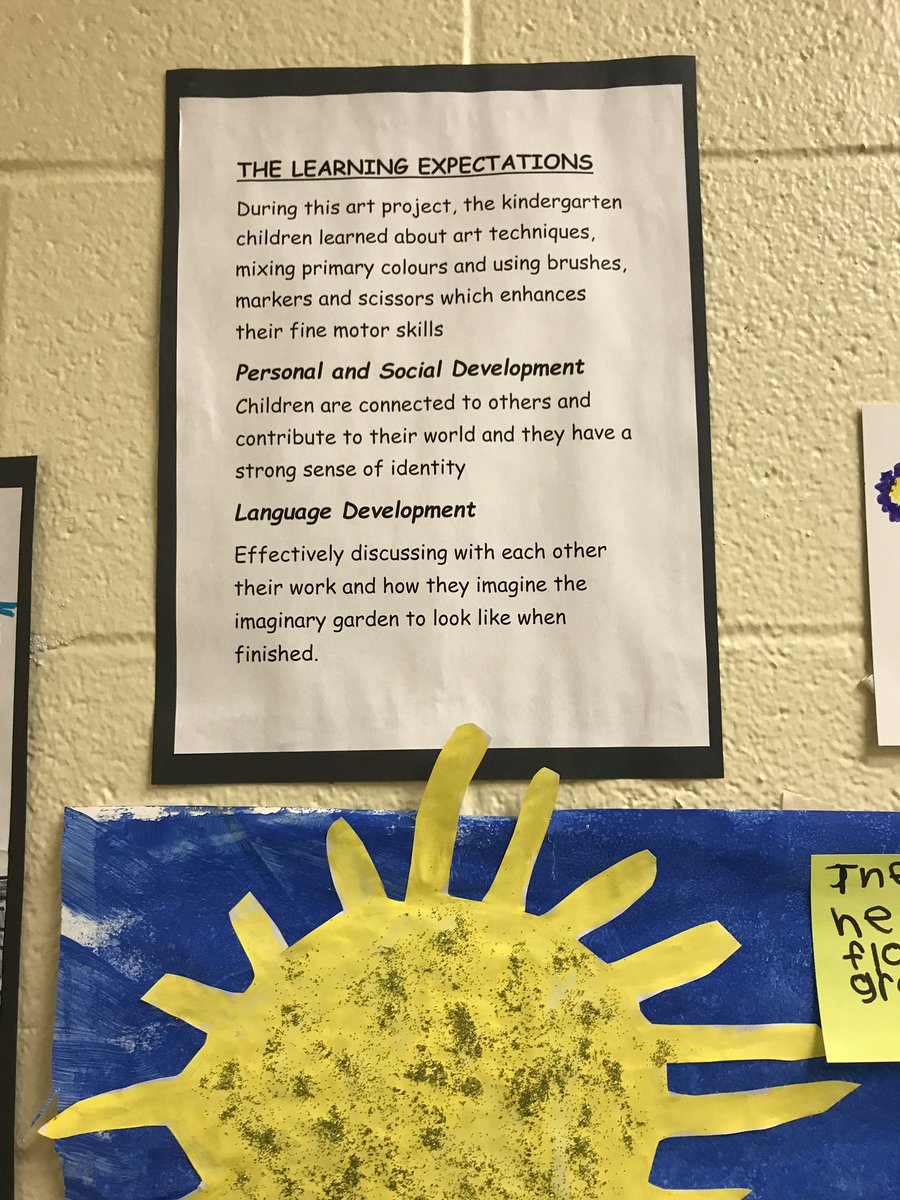 THE LEARNING EXPECTATIONS
During this art project, the kindergarten
children learned about art techniques,
mixing primary colours and using brushes,
markers and scissors which enhances
their fine motor skills
Personal and Social Development
Children are connected to others and
contribute to their world and they have a
strong sense of identity
Language Development
Effectively discussing with each other
their work and how they imagine the
imaginary garden to look like when
finished.